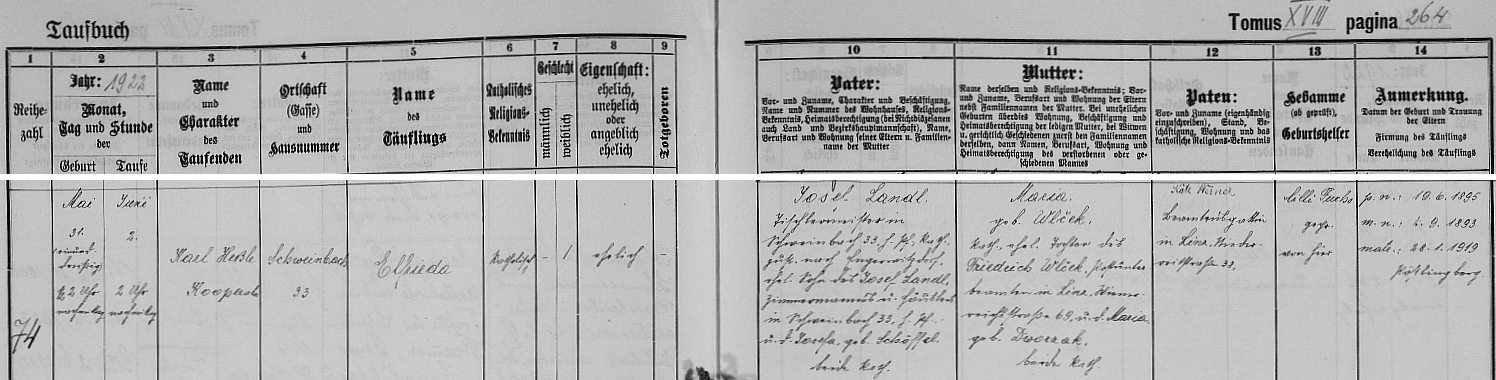 Taufbuch
Tomus XVIII pagina 264
1 2 3 4 5 6 7 8 9
10 11 12 13 14
Reihe-
zahl
Jahr: 1922
Monat,
Tag und Stunde
der
Geburt Taufe
Name
und
Charakter
des
Taufenden
Ortschaft
(Gasse)
und
Hausnummer
Name
des
Täuflings
Katholisches
Religions-
Bekenntnis
Geschlecht
männlich
weiblich
Eigenschaft:
ehelich,
unehelich
oder
angeblich
ehelich
Totgeboren
Vater:
Vor- und Zuname, Charakter und Beschäftigung,
Name und Nummer des Wohnhauses, Religions-
Bekenntnis, Heimatsberechtigung (bei Nichtdiözesanen
auch Land und Bezirkshauptmannschaft), Name,
Berufsart und Wohnung seiner Eltern. — Familien-
name der Mutter
Mutter:
Name derselben und Religions-Bekenntnis; Vor-
und Zuname, Berufsart und Wohnung der Eltern
nebst Familiennamen der Mutter. Bei unehelichen
Geburten überdies Wohnung, Beschäftigung und
Heimatsberechtigung der ledigen Mutter, bei Witwen
u. gerichtlich Geschiedenen zuerst den Familiennamen
derselben, dann Namen, Berufsart, Wohnung und
Heimatsberechtigung des verstorbenen oder ge-
schiedenen Mannes
Paten:
Vor- und Zuname (eigenhändig
einzuschreiben), Stand, Be-
schäftigung, Wohnung und das
katholische Religions-Bekenntnis
Hebamme
(ob geprüft),
Geburtshelfer
Anmerkung.
Datum der Geburt und Trauung
der Eltern
Firmung des Täuflings
Verehelichung des Täuflings
74
Mai
31.
einund
dreißig
½ 2 Uhr
nachmittag
Juni
2.
2 Uhr
nachmittag
Karl Heßle
Kooperator
Schweinbach
33
Elfrieda
katholisch
-
1
ehelich
-
Josef Landl.
Tischlermeister in
Schweinbach 33, h. Pf. kath.
zust. nach Engerwitzdorf.
ehel. Sohn des Josef Landl,
Zimmermannes u. Häuslers
in Schweinbach 33, h. Pf.
u. d. Josefa, geb. Schöffel.
beide kath.
Maria.
geb. Wlček.
kath., ehel. Tochter des
Friedrich Wlček, Postunter
beamten in Linz, Nieder-
reithstraße 69, u. d. Maria.
geb. Dworzak.
beide kath.
Käte Werner
Beamtensgattin
in Linz. Nieder-
reithstraße 33.
Cilli Fuchs
gepr.
von hier
p. n.: 19. 6. 1895
m. n.: 4. 9. 1893
matr.: 28. 1. 1919
Pöstlingberg.